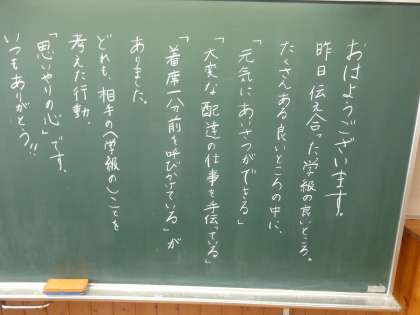 おはようございます。
昨日伝え合った「学級の良いところ。
たくさんある良いところの中に、
「元気にあいさつができる」
「大変な配達の仕事を手伝っている」
「着席一分前を呼びかけている」が
ありました。
どれも、相手の(学級の)ことを
考えた行動。
「思いやりの心」です。
いつもありがとう!!